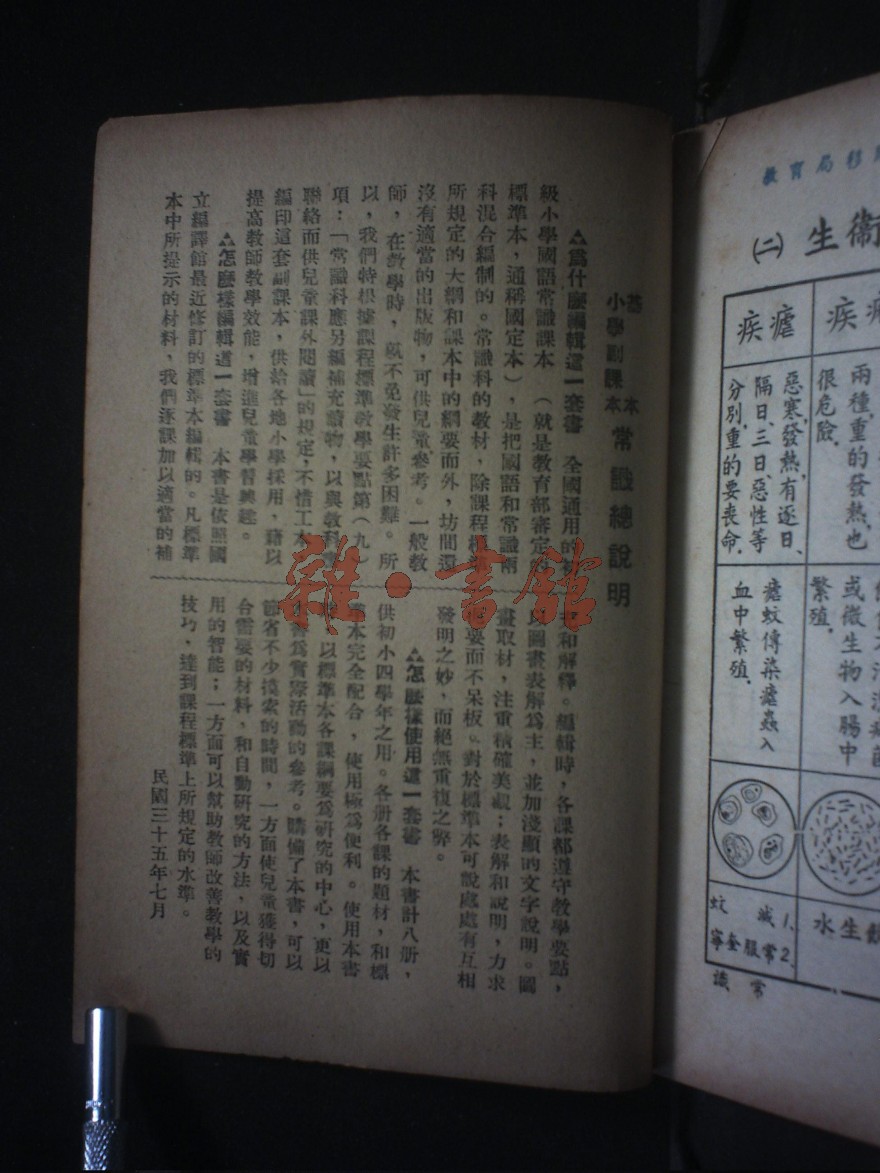 小學副課本 常識總說明
為什麼編輯這一套書 全國通用的初
級小學國語常識課本（就是教育部審定的
標準本，通稱國定本），是把國語和常識兩
科混合編制的。常識科的教材，除課程標準
所規定的大綱和課本中的綱要而外，坊間還
沒有適當的出版物，可供兒童參考。一般教
師，在教學時，就不免發生許多困難。所
以，我們特根據課程標準教學要點第（九）
項：「常識科應另編補充讀物，以與教科書
聯絡而供兒童課外閱讀」的規定，不惜工本，
編印這套副課本，供給各地小學採用，藉以
提高教師教學效能，增進兒童學習興趣。
怎麼樣編輯這一套書 本書是依照國
立編譯館最近修訂的標準本編輯的。凡標準
本中所提示的材料，我們逐課加以適當的補
和解釋。編輯時，各課都遵守教學要點，
以圖畫表解為主，並加淺顯的文字說明。圖
畫取材，注重精確美觀；表解和說明，力求
要而不呆板。對於標準本可說處處有互相
發明之妙，而絕無重復之弊。
怎麼樣使用這一套書 本書計八册，
供初小四學年之用。各册各課的題材，和標
準本完全配合，使用極為便利。使用本書
以標準本各課綱要為研究的中心，更以
本書為實際活動的參考。購備了本書，可以
節省不少摸索的時間，一方面使兒童獲得切
合需要的材料，和自動研究的方法，以及實
用的智能；一方面可以幫助教師改善教學的
技巧，達到課程標準上所規定的水準。
民國三十五年七月
雜·書館
教育局移
衛生（二）
疾
兩種，重的發熱也
很危險。
或微生物入腸中
繁殖。
水生
瘧疾
惡寒，發熱，有逐日、
隔日、三日、惡性等
分別，重的要喪命。
瘧蚊傳染瘧蟲入
血中繁殖。
1、減
2、常服金
蚊
常識